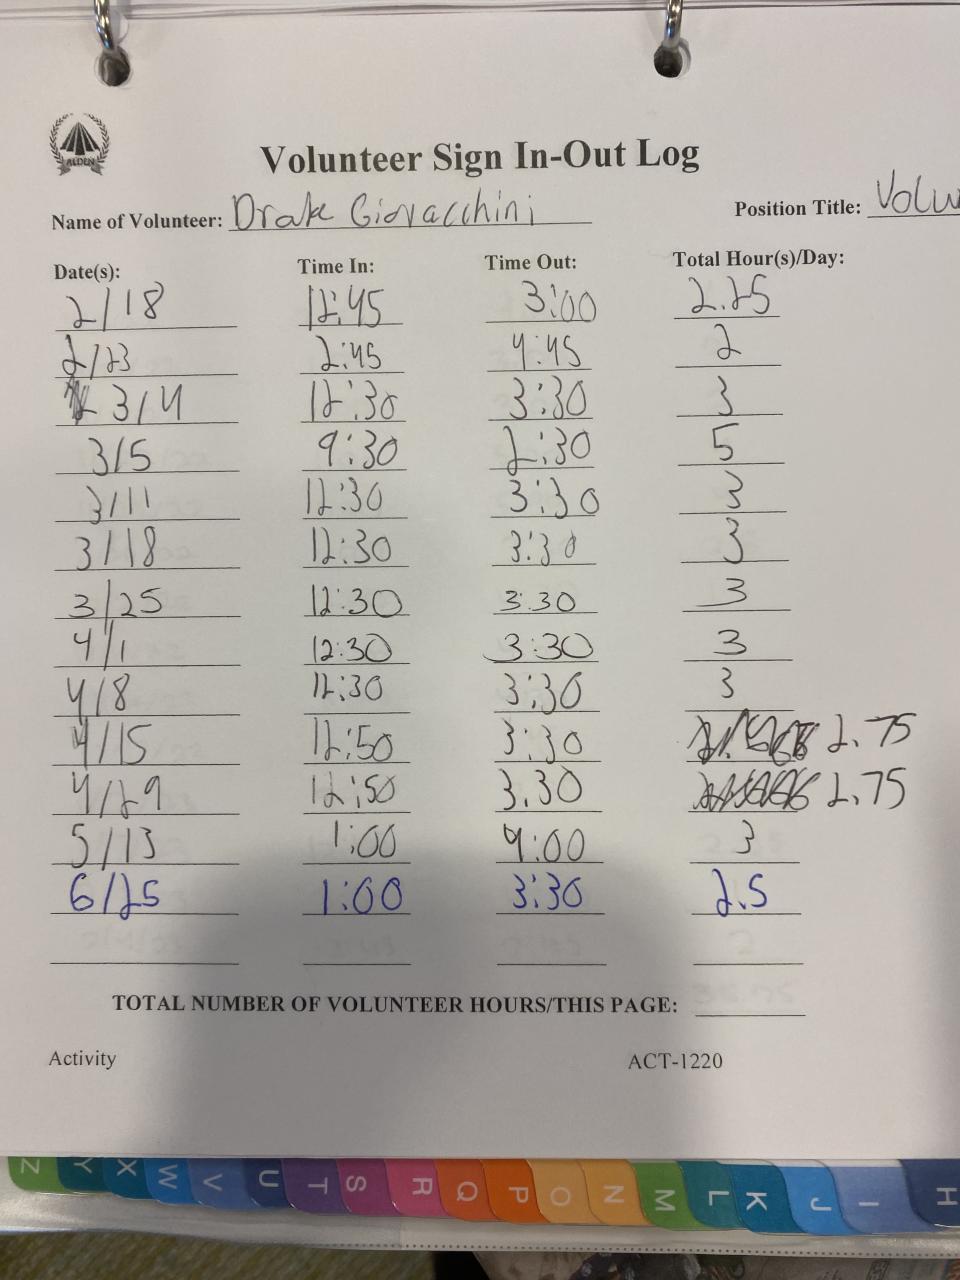 ALDEN
Volunteer Sign In-Out Log
Name of Volunteer: Drake Giovacchini Position Title:
Date(s): Time In: Time Out: Total Hour(s)/Day:
2/18 12:45 3:00 2.25
2/23 2:45 4:45 2
3/4 12:30 3:30 3
3/5 9:30 2:30 5
3/11 12:30 3:30 3
3/18 12:30 3:30 3
3/25 12:30 3:30 3
4/1 12:30 3:30 3
4/8 12:30 3:30 3
4/15 12:50 3:30 2.75
4/29 12:50 3:30 2.75
5/13 1:00 4:00 3
6/25 1:00 3:30 2.5
TOTAL NUMBER OF VOLUNTEER HOURS/THIS PAGE:
Activity ACT-1220
Z Y X W V U T S R Q P O N M L K J I H